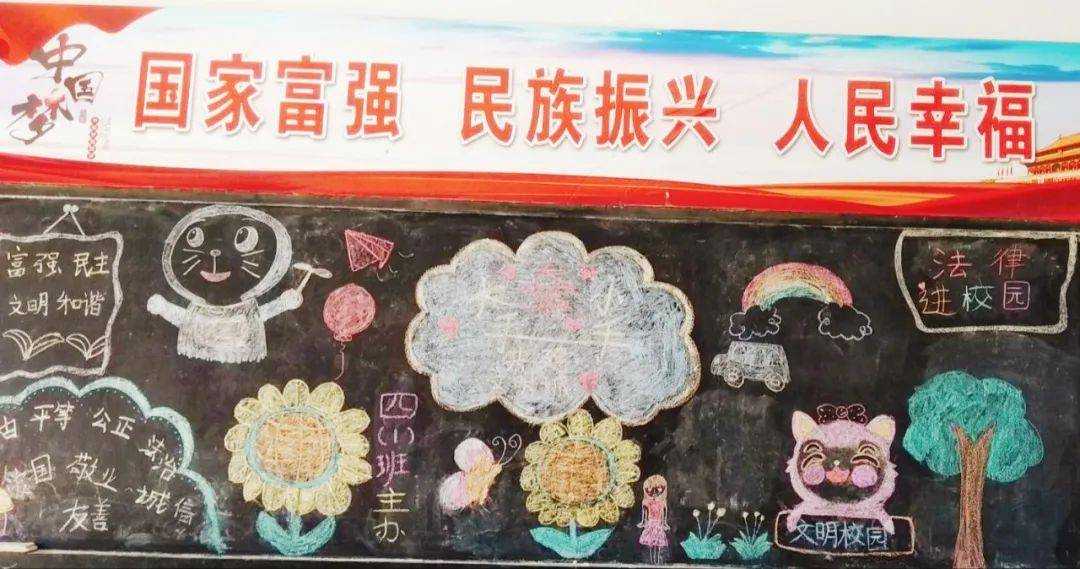 中国梦
国家富强 民族振兴 人民幸福
富强 民主
文明 和谐
由 平等 公正 法治
爱国 敬业 诚信
友善
四(1)班主办
法律
进校园
文明校园